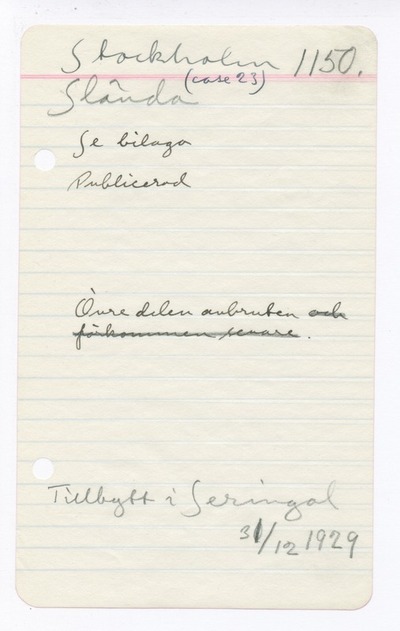 Stockholm 1150.
(case 23)
Slända
Se bilaga
Publicerad
Övre delen avbruten och
förkommen senare.
Tillbytt i Seringal
31/12 1929